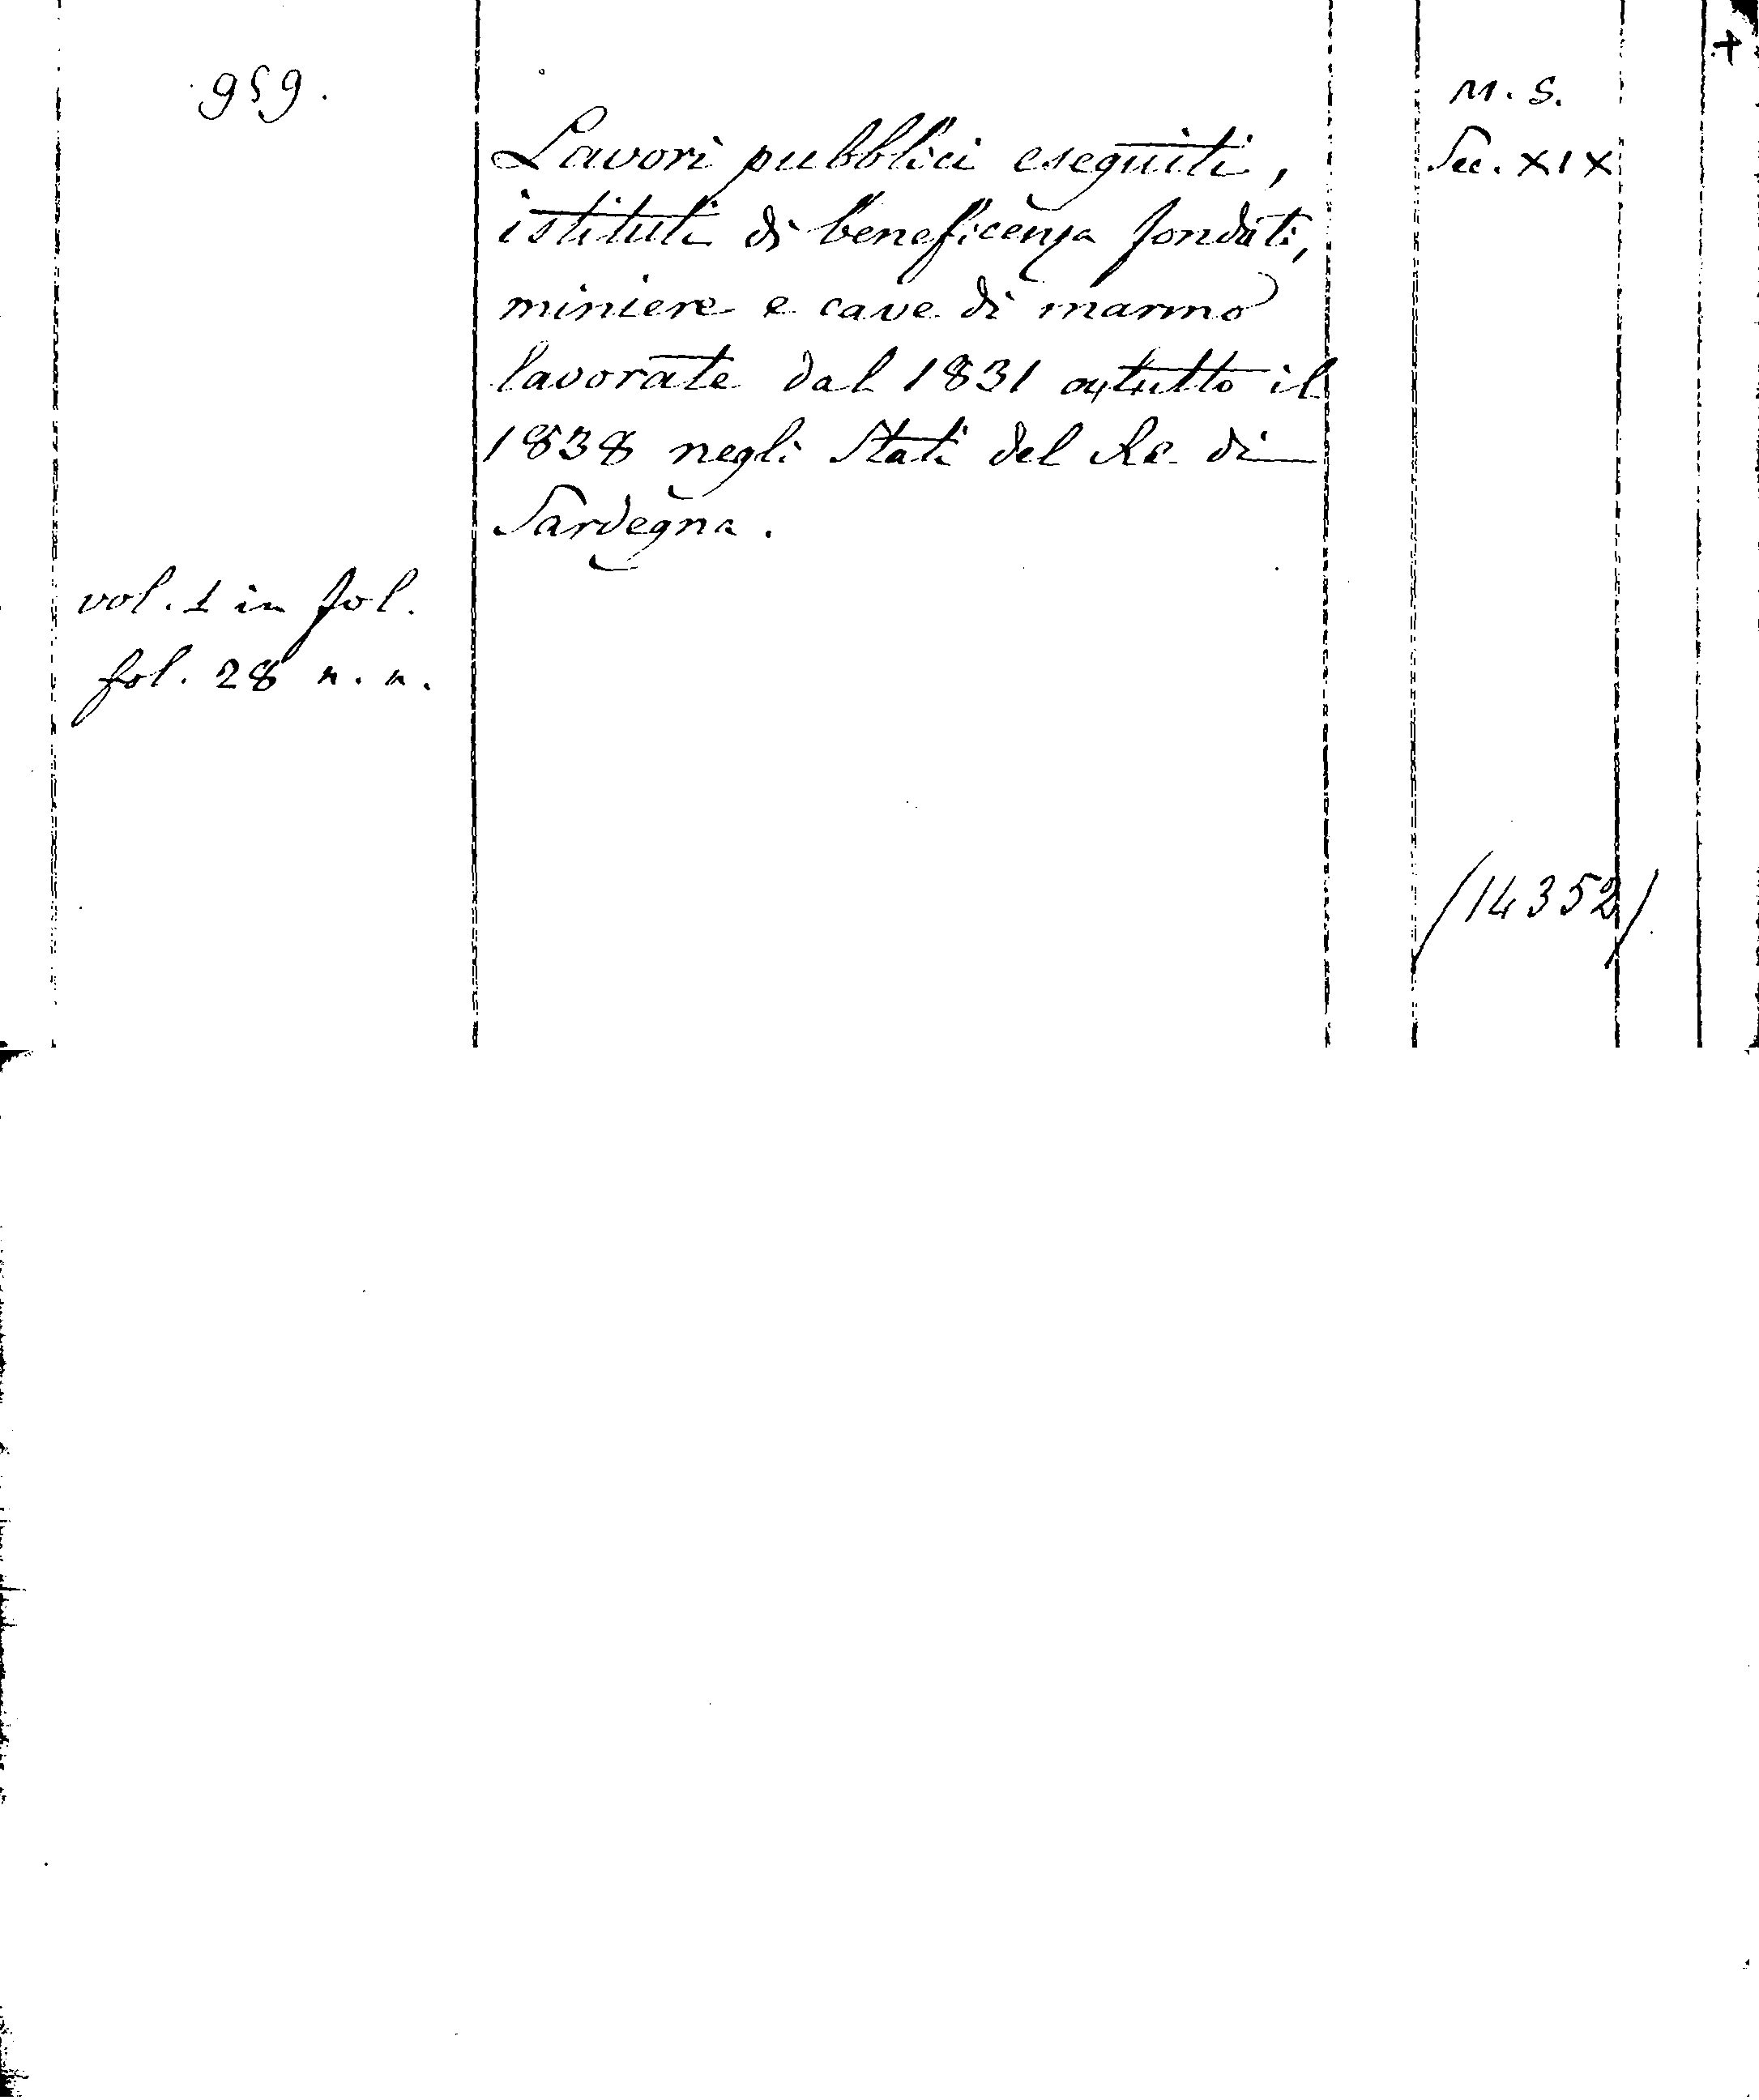 +
959.
M. S.
Sec. XIX
Lavori pubblici eseguiti,
istituti di beneficenza fondati,
miniere e cave di marmo
lavorate dal 1831 a tutto il
1838 negli Stati del Re di
Sardegna.
vol. 1 in fol.
fol. 28 n. n.
(14352)